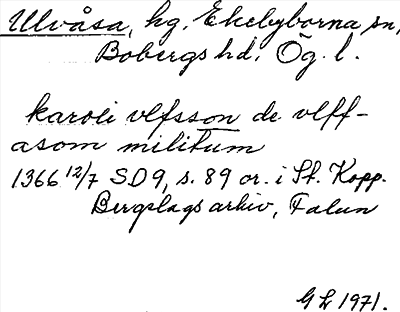 Ulvåsa, hg. Ekebyborna sn,
Bobergs hd. Ög. l.
karoli vlfsson de vlff-
asom militum
1366 12/7 SD9, s. 89 or. i St. Kopp.
Bergslags arkiv, Falun
G L 1971.